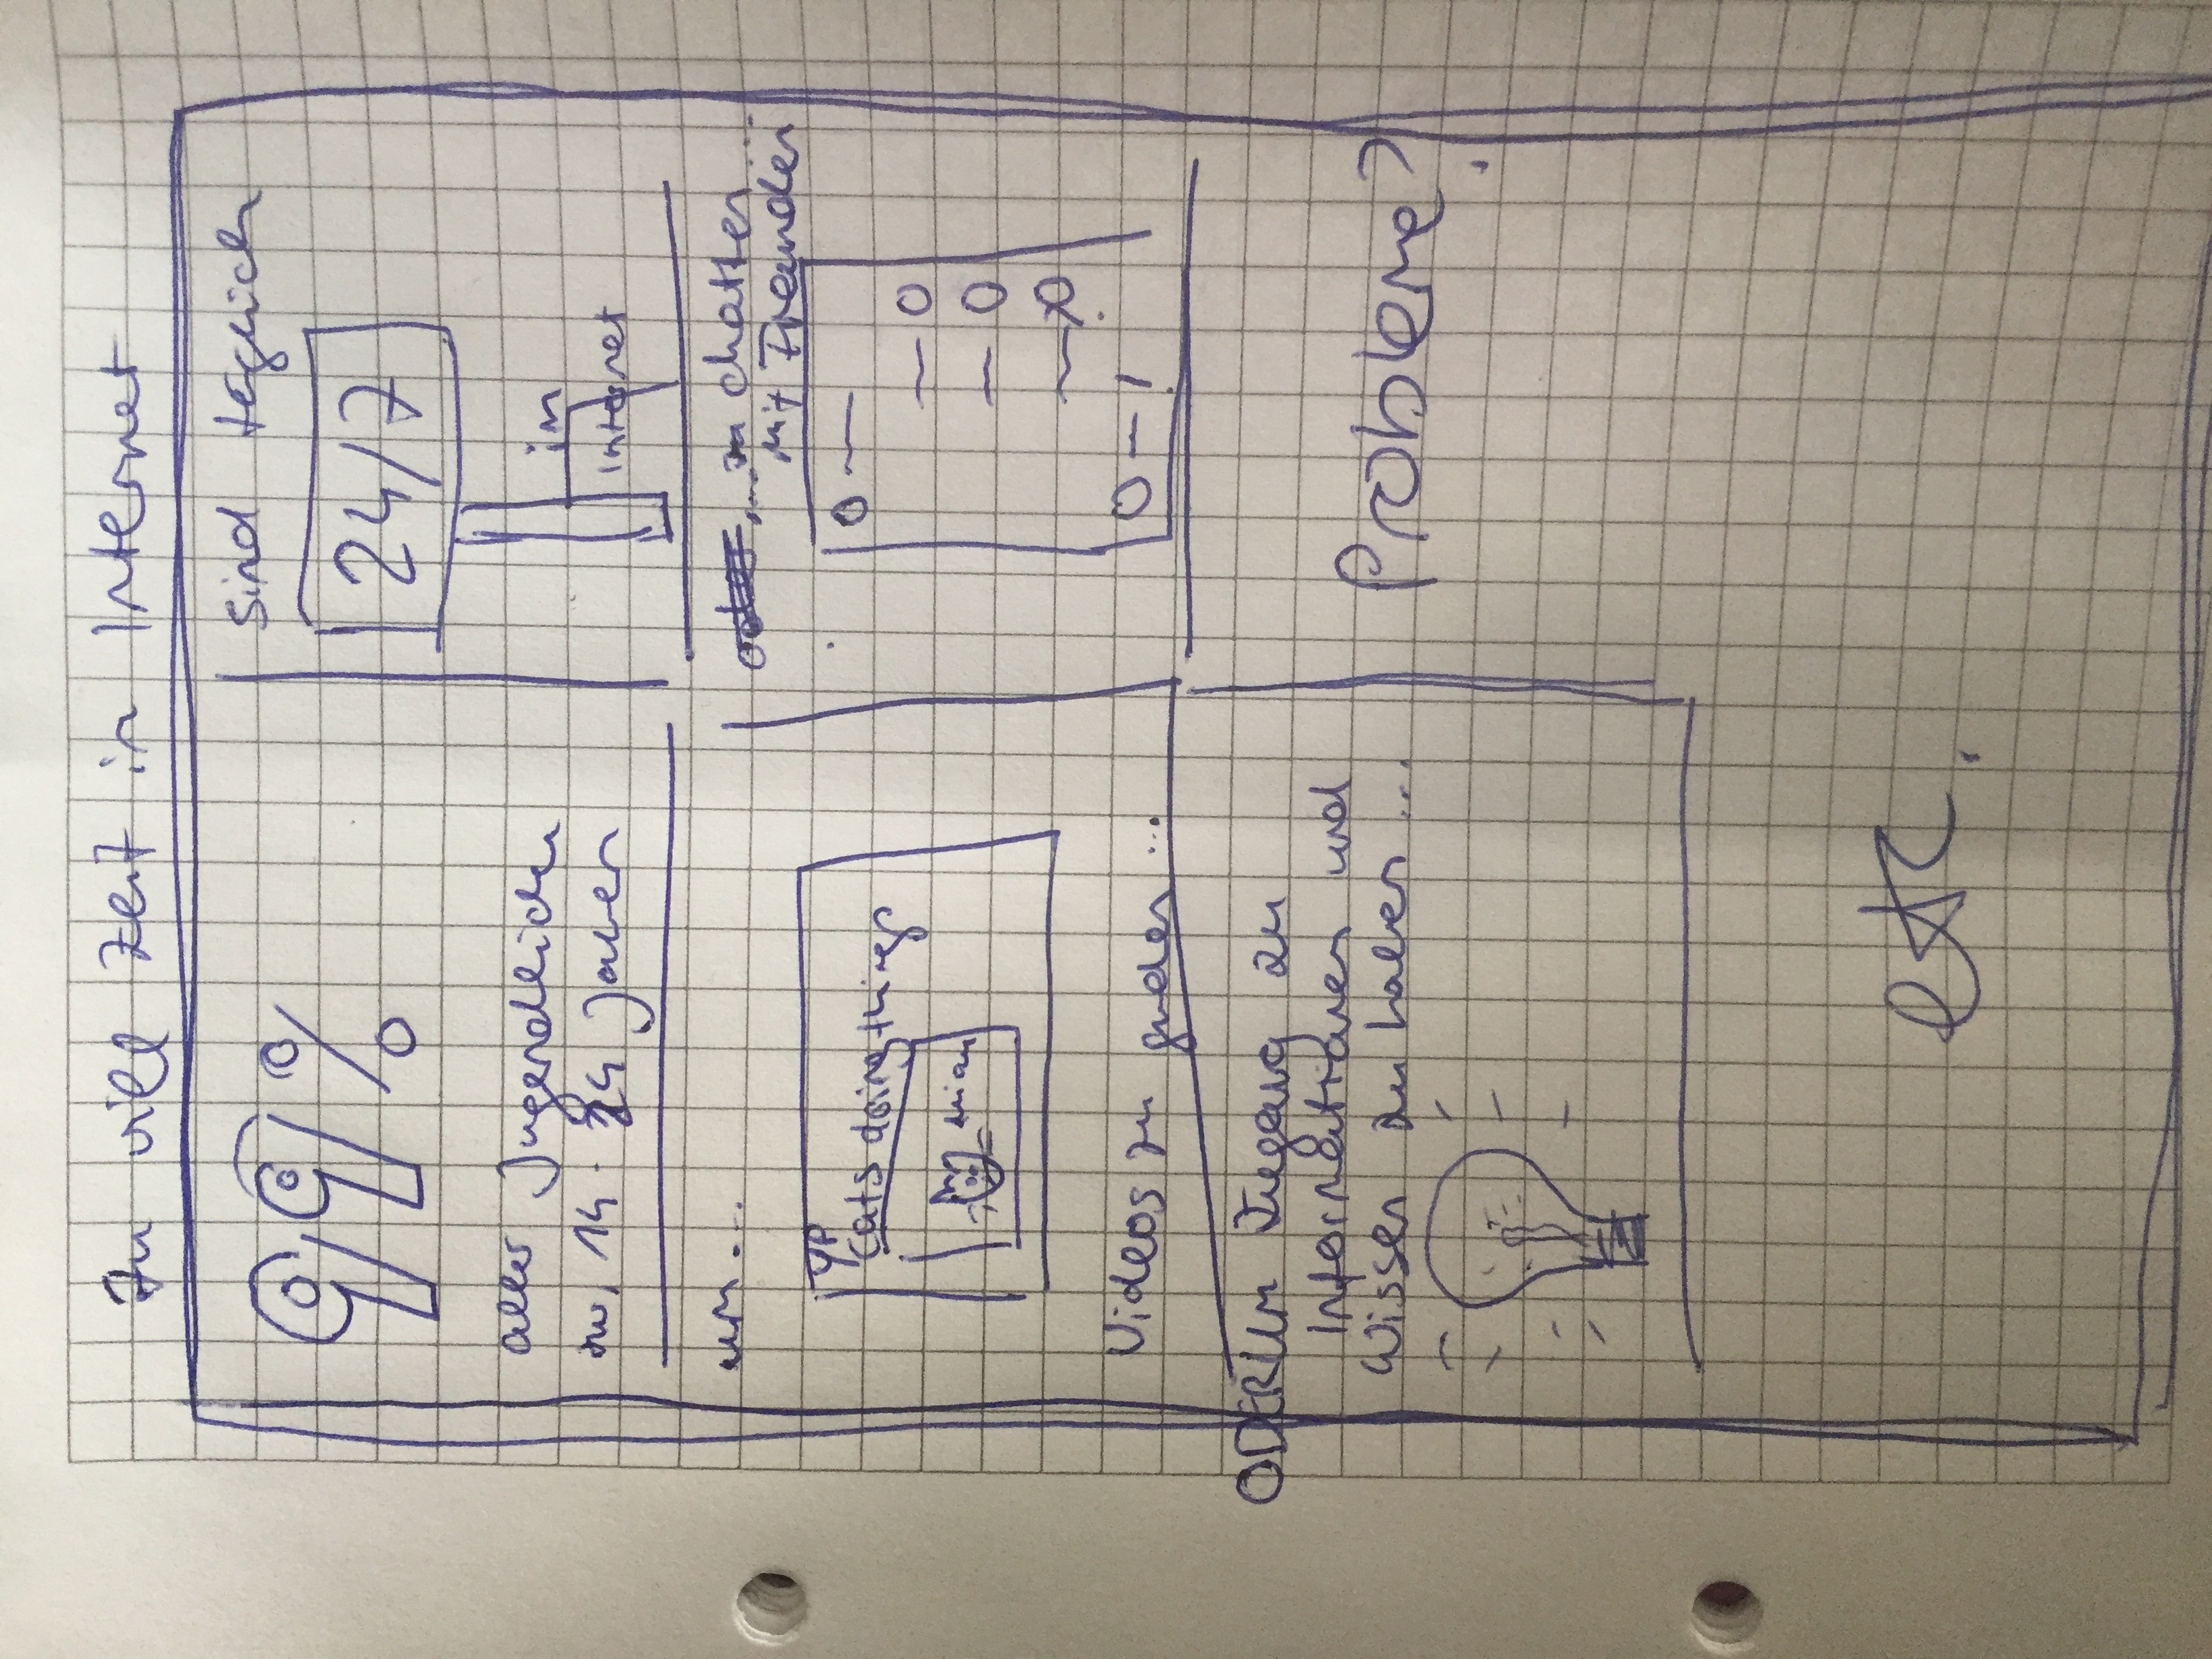 Zu viell Zeit in Internet
99%
aller Jugendlichen
zw. 14 - 24 Jahren
sind täglich
24/7
im
Internet
um...
cats doing things
miau
Videos zu gucken ...
... zu chatten ...
mit Freunden
ODER Um Zugang zu
Informationen und
Wissen zu haben ...
Probleme?
etc.